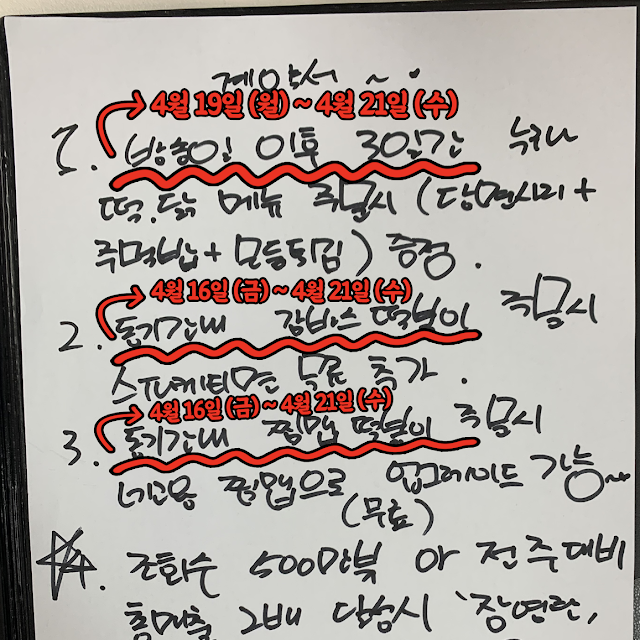 계약서 ~.
4월 19일 (월) ~ 4월 21일 (수)
1. 방송일 이후 30일간
떡.닭 메뉴 주문시 (당면사리 +
주먹밥 + 모듬튀김) 증정.
4월 16일 (금) ~ 4월 21일 (수)
2. 동기간내 감바스 떡볶이 주문시
스파게티면 무료 추가.
4월 16일 (금) ~ 4월 21일 (수)
3. 동기간내 찜맵 떡볶이 주문시
네고용 찜맵으로 업그레이드 가능~
(무료)
4. 조회수 500만뷰 or 전주대비
총매출 2배 달성시 '장연란,